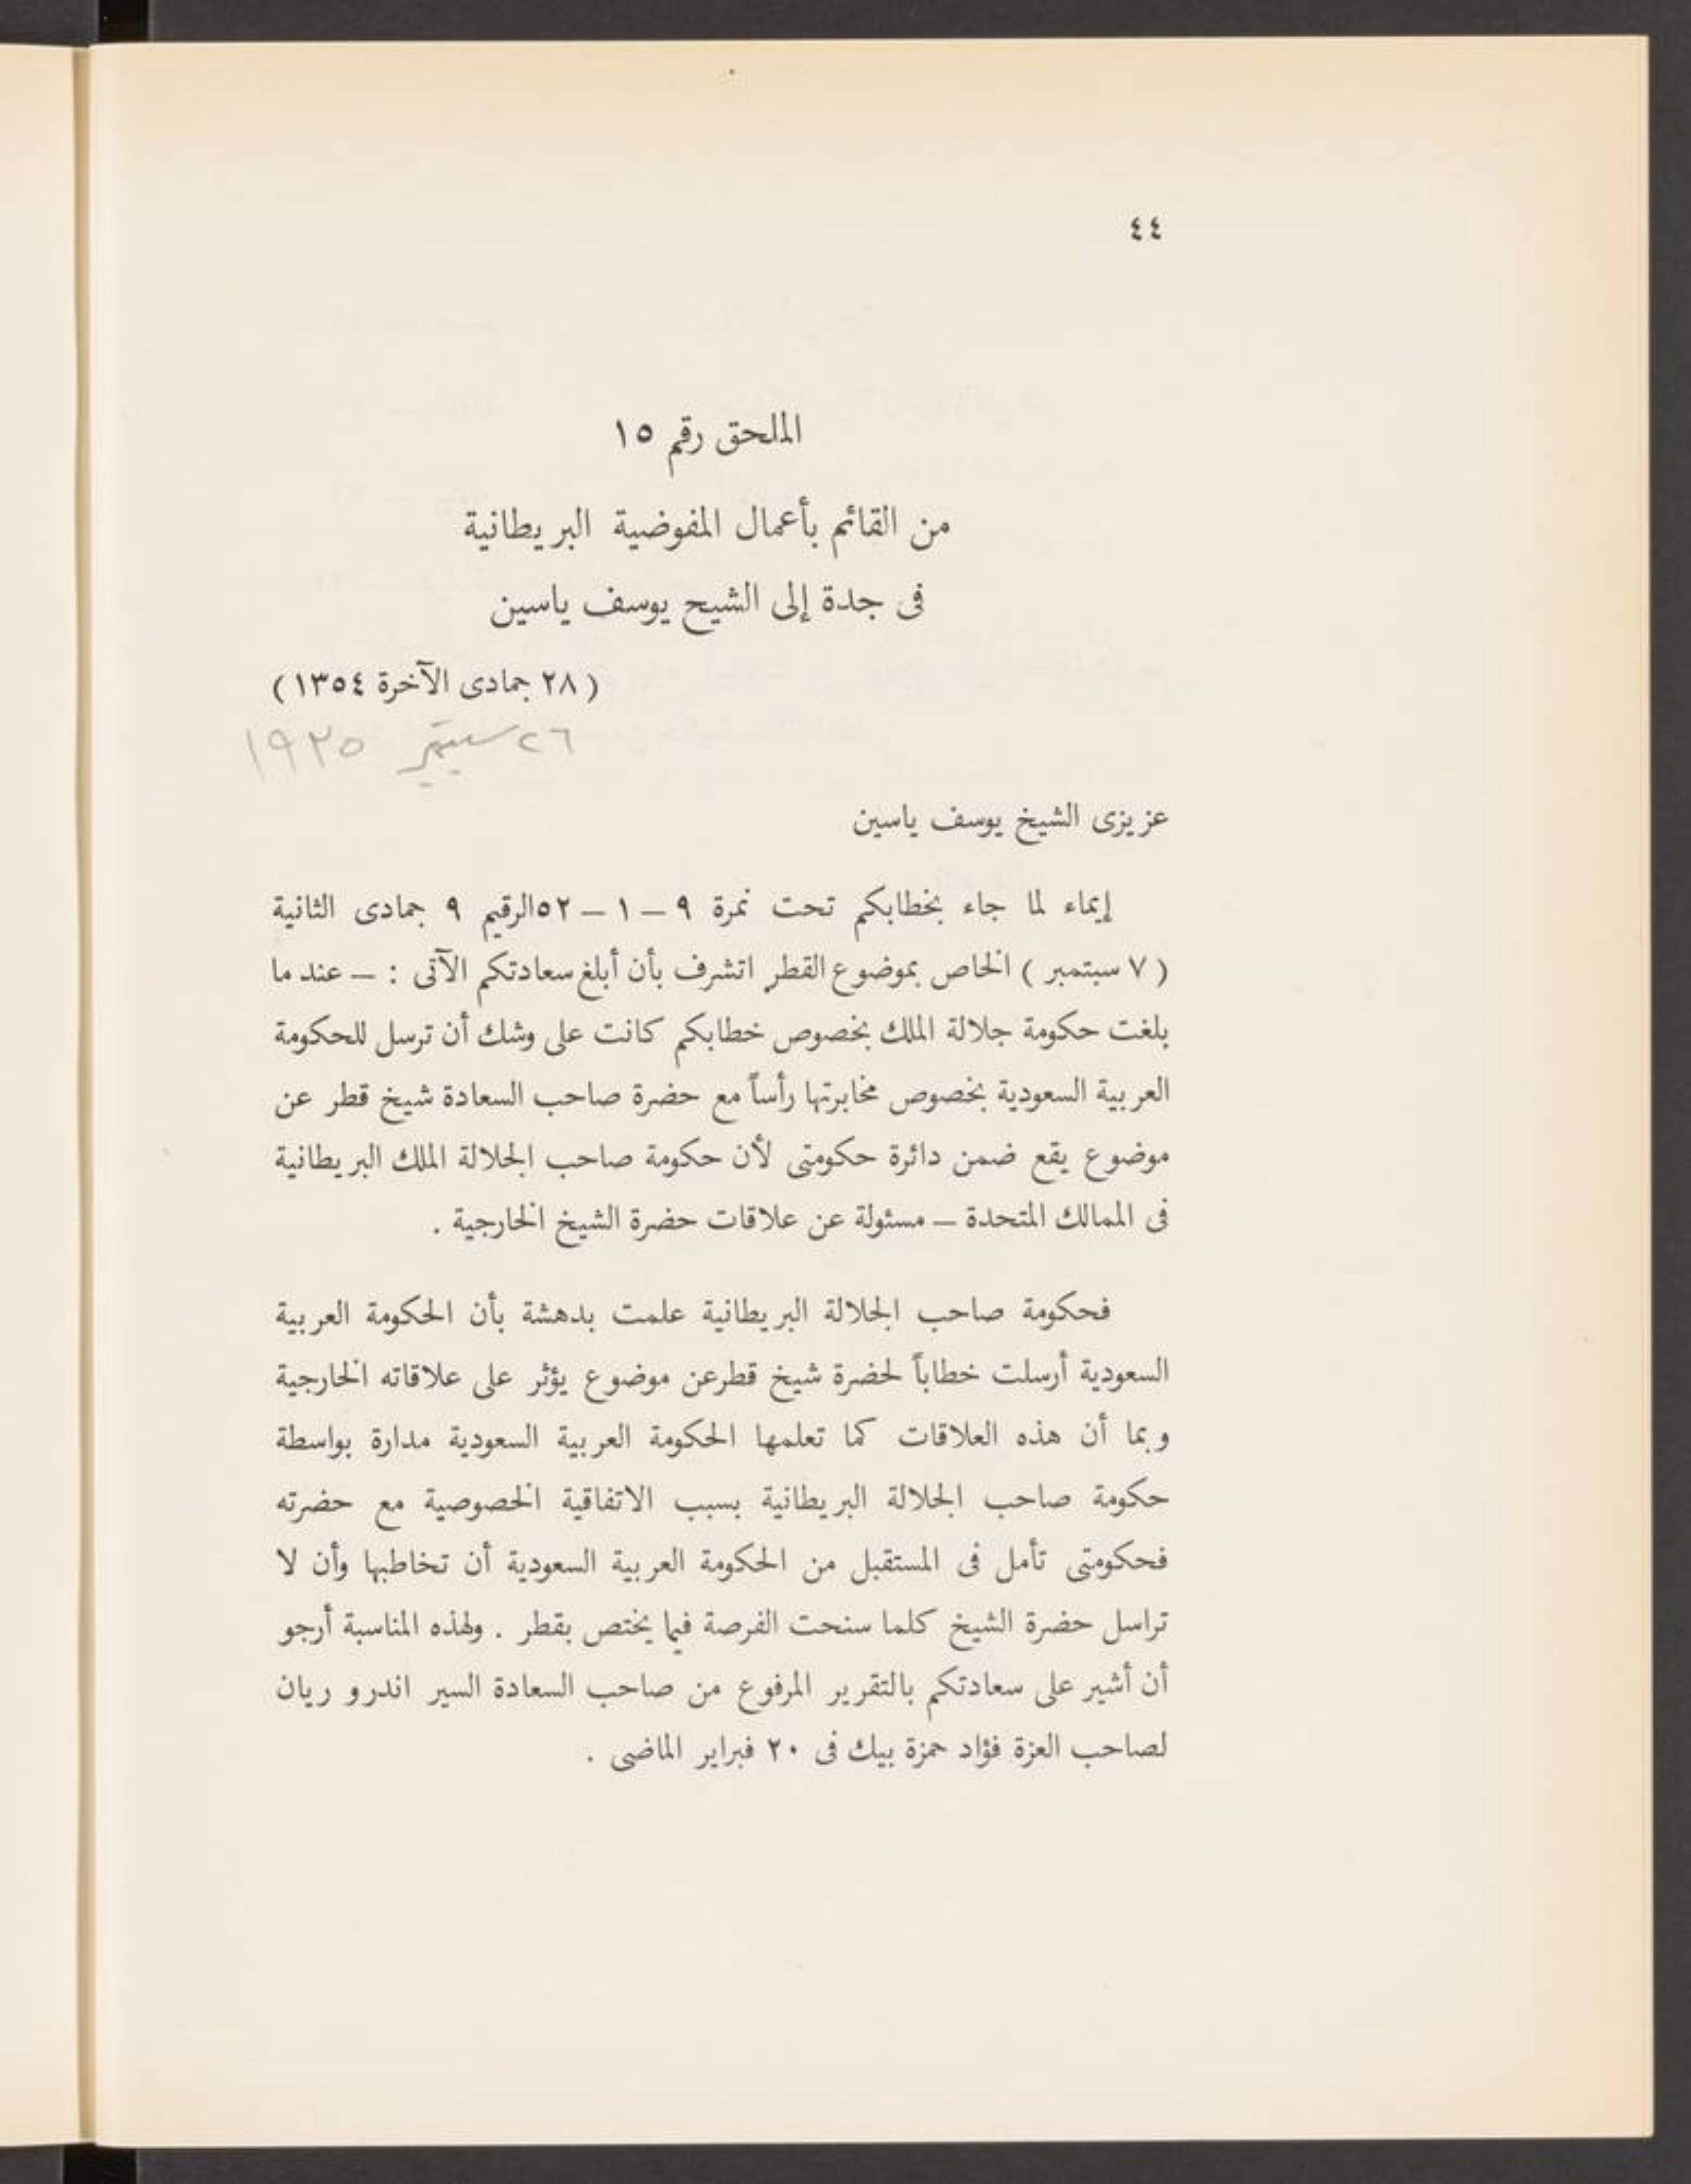 ٤٤
الملحق رقم ١٥
من القائم بأعمال المفوضية البريطانية
فى جدة إلى الشيح يوسف ياسين
( ٢٨ جمادى الآخرة ١٣٥٤ )
٢٦ سبتمبر ١٩٣٥
عزيزى الشيخ يوسف ياسين
إيماء لما جاء بخطابكم تحت نمرة ٩ – ١ – ٥٢ الرقيم ٩ جمادى الثانية
( ٧ سبتمبر ) الخاص بموضوع القطر اتشرف بأن أبلغ سعادتكم الآتى : – عند ما
بلغت حكومة جلالة الملك بخصوص خطابكم كانت على وشك أن ترسل للحكومة
العربية السعودية بخصوص مخابرتها رأساً مع حضرة صاحب السعادة شيخ قطر عن
موضوع يقع ضمن دائرة حكومتى لأن حكومة صاحب الجلالة الملك البريطانية
فى الممالك المتحدة – مسئولة عن علاقات حضرة الشيخ الخارجية .
فحكومة صاحب الجلالة البريطانية علمت بدهشة بأن الحكومة العربية
السعودية أرسلت خطاباً لحضرة شيخ قطر عن موضوع يؤثر على علاقاته الخارجية
وبما أن هذه العلاقات كما تعلمها الحكومة العربية السعودية مدارة بواسطة
حكومة صاحب الجلالة البريطانية بسبب الاتفاقية الخصوصية مع حضرته
فحكومتى تأمل فى المستقبل من الحكومة العربية السعودية أن تخاطبها وأن لا
تراسل حضرة الشيخ كلما سنحت الفرصة فيما يختص بقطر . ولهذه المناسبة أرجو
أن أشير على سعادتكم بالتقرير المرفوع من صاحب السعادة السير اندرو ريان
لصاحب العزة فؤاد حمزة بيك فى ٢٠ فبراير الماضى .